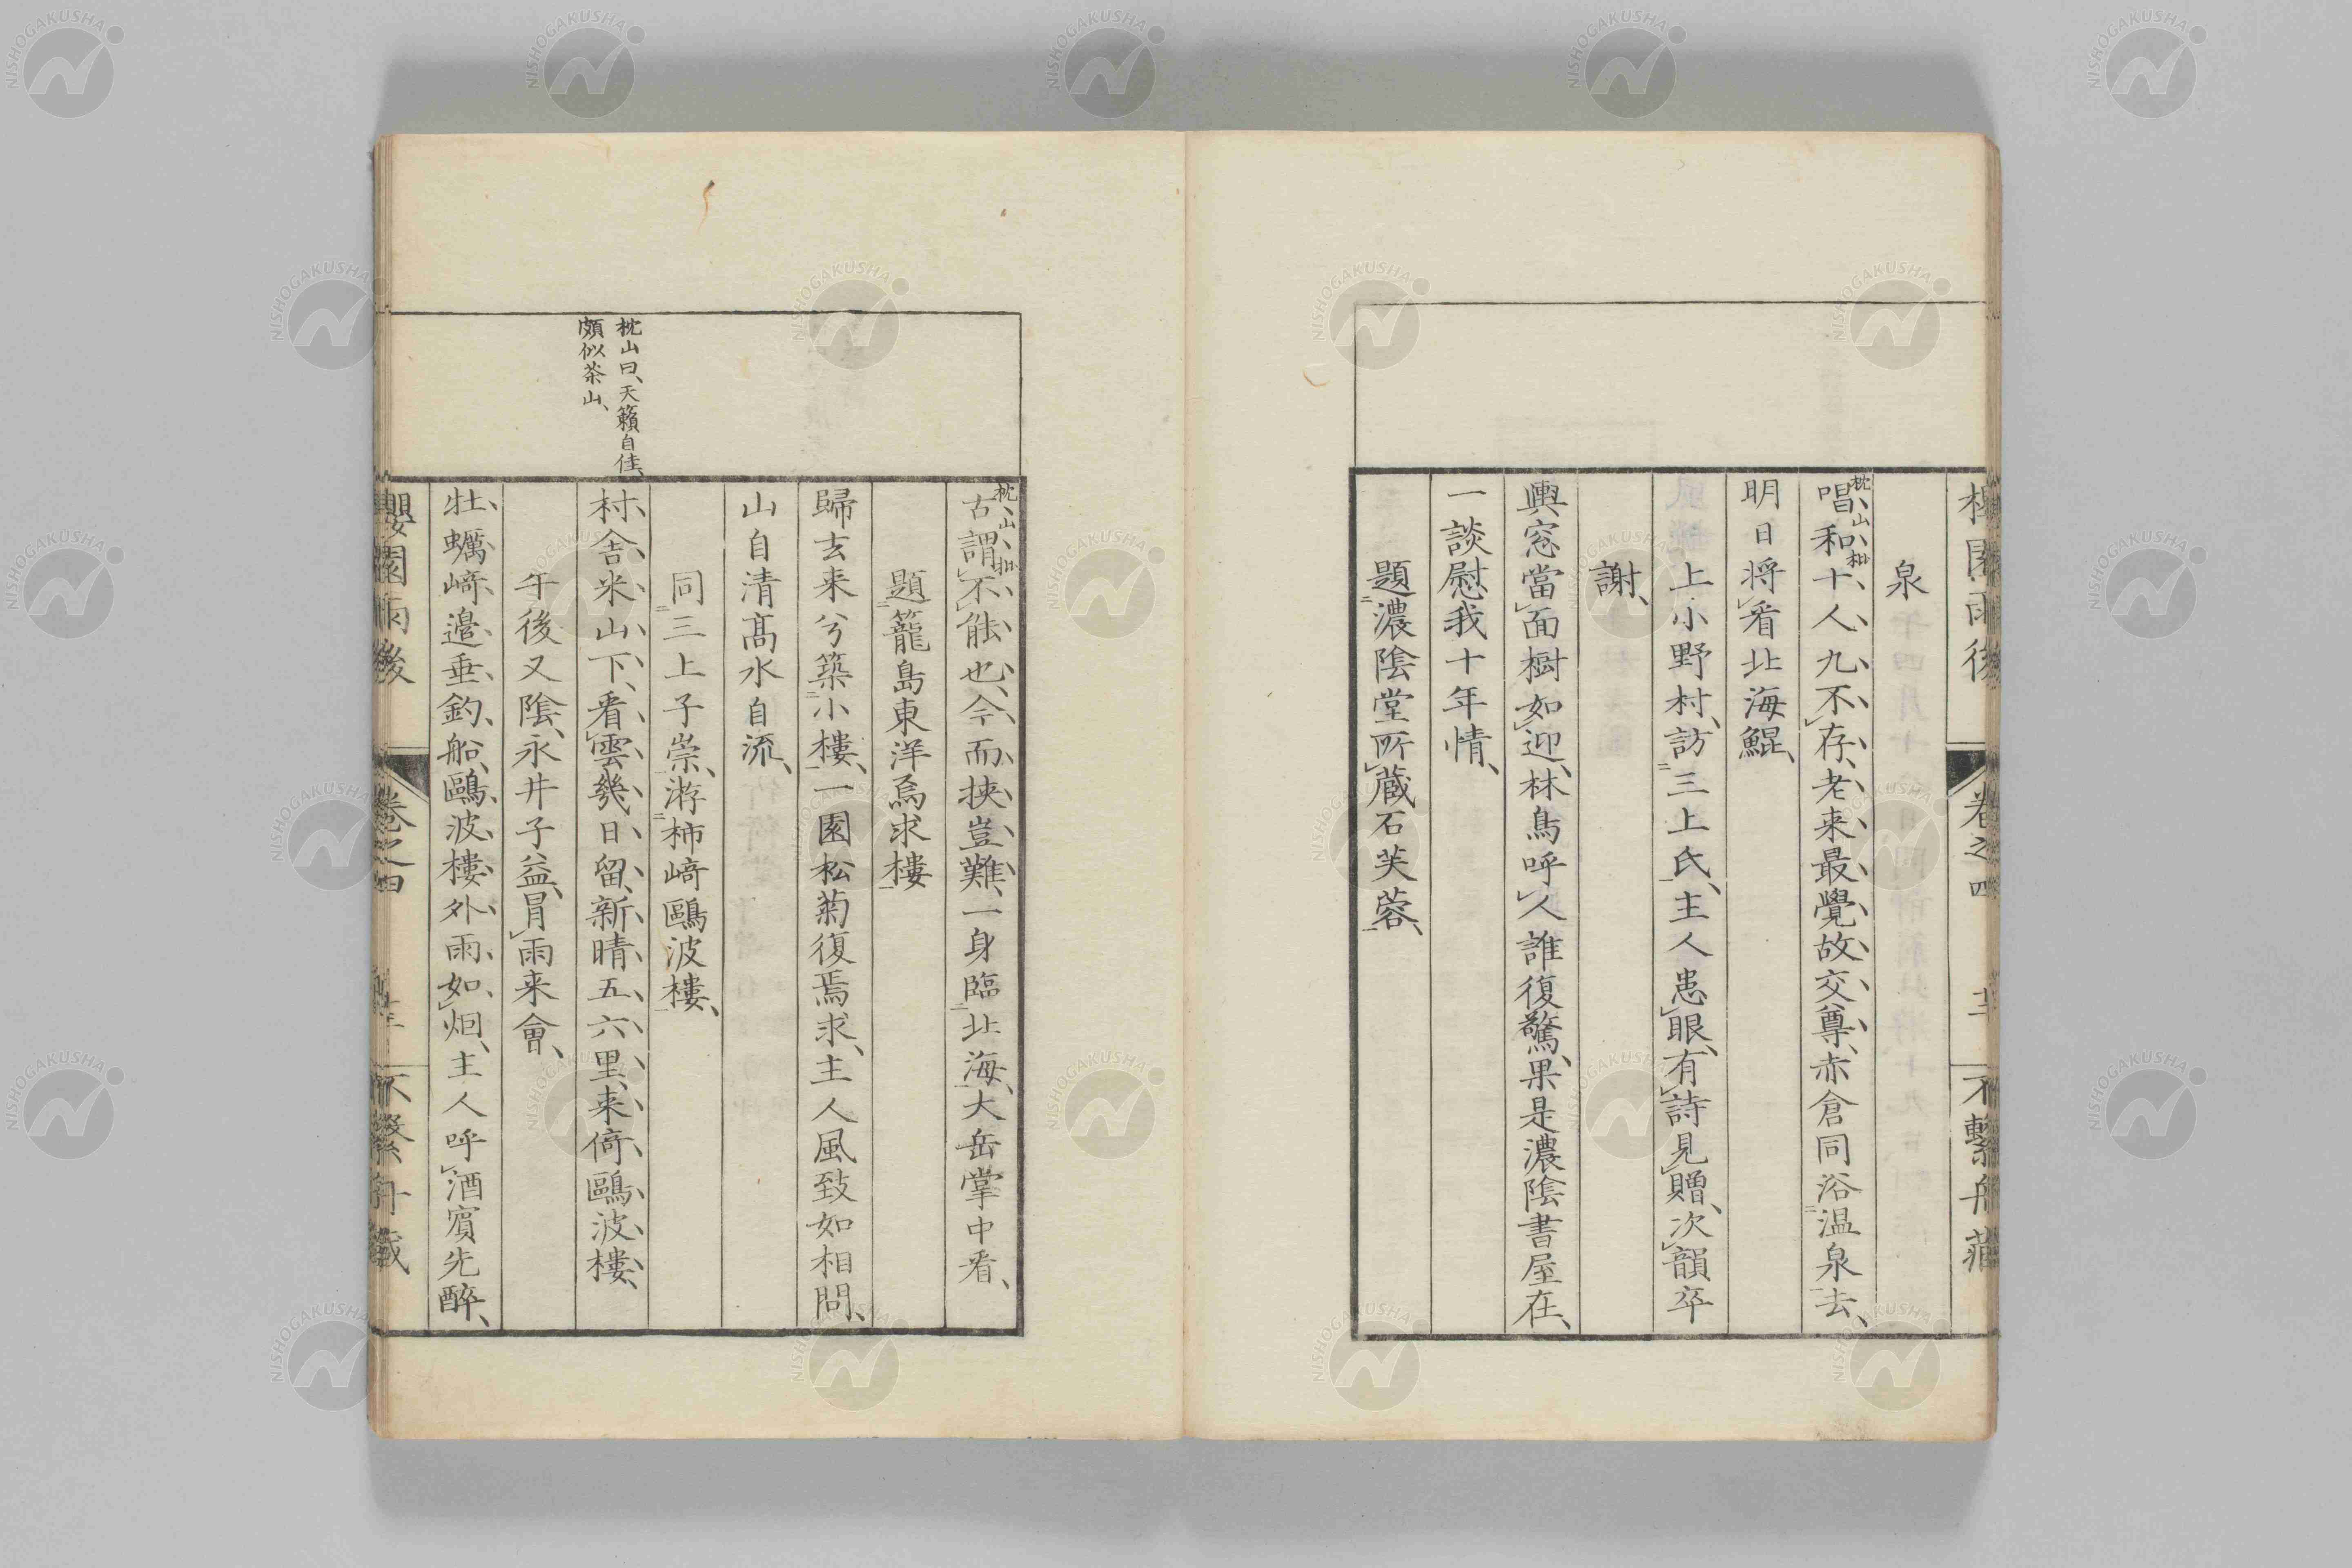 泉
唱和十人九不存、老来最覺故交尊、赤倉同浴温泉去、
明日将看北海鯤、
上小野村、訪三上氏、主人患眼、有詩見贈、次韻卒
謝、
輿窓當面樹如迎、林鳥呼人誰復驚、果是濃陰書屋在、
一談慰我十年情、
題濃陰堂所蔵石芙蓉、
古謂不能也、今而挾豈難、一身臨北海、大岳掌中看、
題籠島東洋焉求樓
歸去来兮築小樓、一園松菊復焉求、主人風致如相問、
山自清髙水自流、
同三上子崇、游柿﨑鷗波樓、
枕山曰、天籟自佳、
頗似茶山、
村舎米山下、看雲幾日留、新晴五六里、来倚鷗波樓、
午後又陰、永井子益、冒雨来會、
牡蠣﨑邉垂釣船、鷗波樓外雨如烟、主人呼酒賓先醉、
櫻園雨後 卷之四
NISHOGAKUSHA